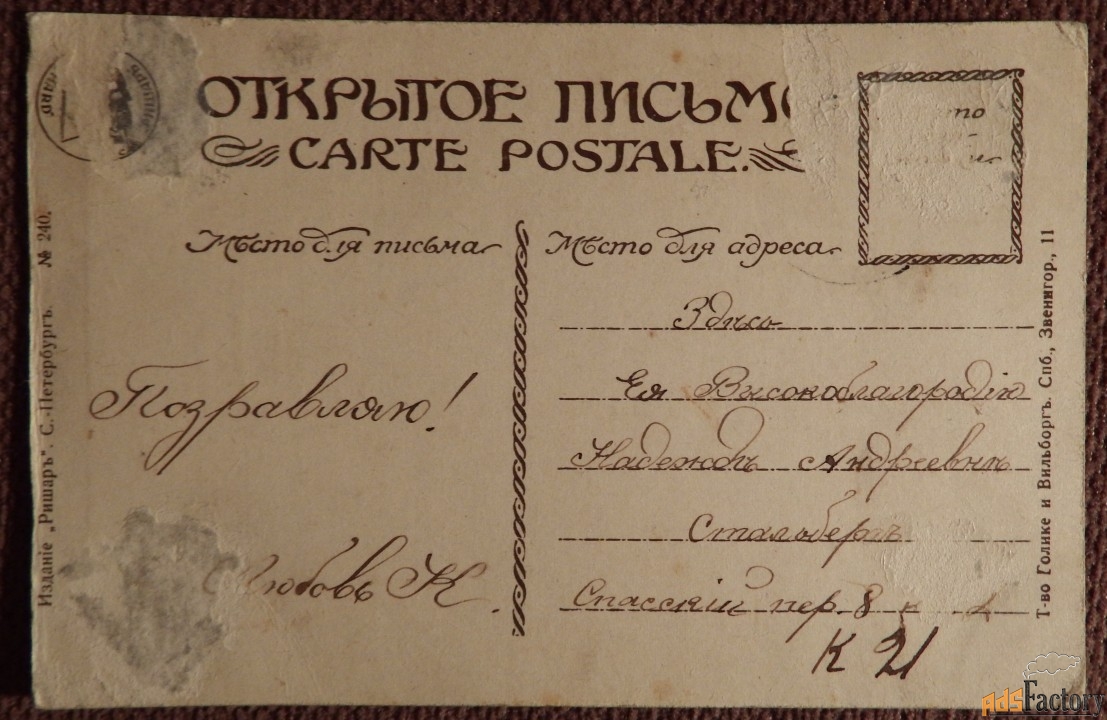 ОТКРЫТОЕ ПИСЬМО
CARTE POSTALE.
Мѣсто для письма
Мѣсто для адреса
Поздравляю!
Любовь К.
Здѣсь
Ея Высокоблагородію
Надеждѣ Андреевнѣ
Стальбергъ
Спасскій пер. 8
К 21
Изданіе „Ришаръ". С.-Петербургъ. № 240.
Т-во Голике и Вильборгъ. Спб., Звенигор., 11
AdsFactory